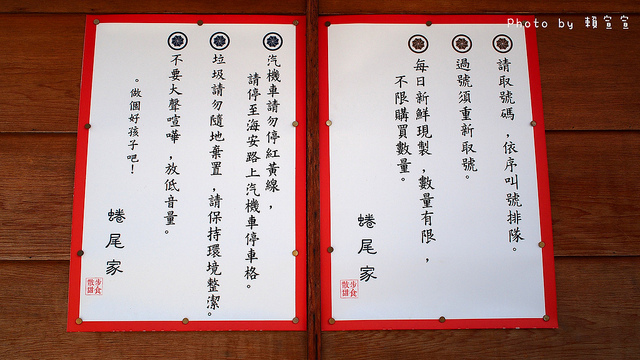 Photo by 賴宣宣
請取號碼，依序叫號排隊。
過號須重新取號。
每日新鮮現製，數量有限，
不限購買數量。
蜷尾家
散步甜食
汽機車請勿停紅黃線，
請停至海安路上汽機車停車格。
垃圾請勿隨地棄置，請保持環境整潔。
不要大聲喧嘩，放低音量。
。做個好孩子吧！
蜷尾家
散步甜食